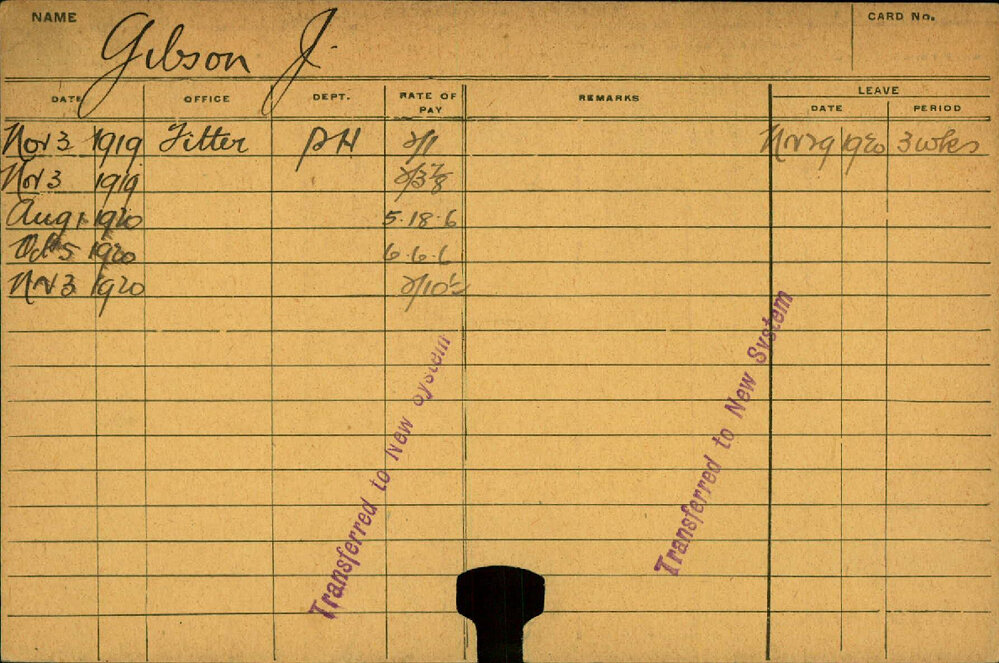 NAME Gibson J. CARD No.
DATE OFFICE DEPT. RATE OF PAY REMARKS LEAVE
DATE PERIOD
Nov 3 1919 Fitter PH 2/1 Nv 29 1920 3 wks
Nov 3 1919 2/3⅞
Aug 1 1920 5.18.6
Oct 5 1920 6.6.6
Nv 3 1920 2/10½
Transferred to New System
Transferred to New System